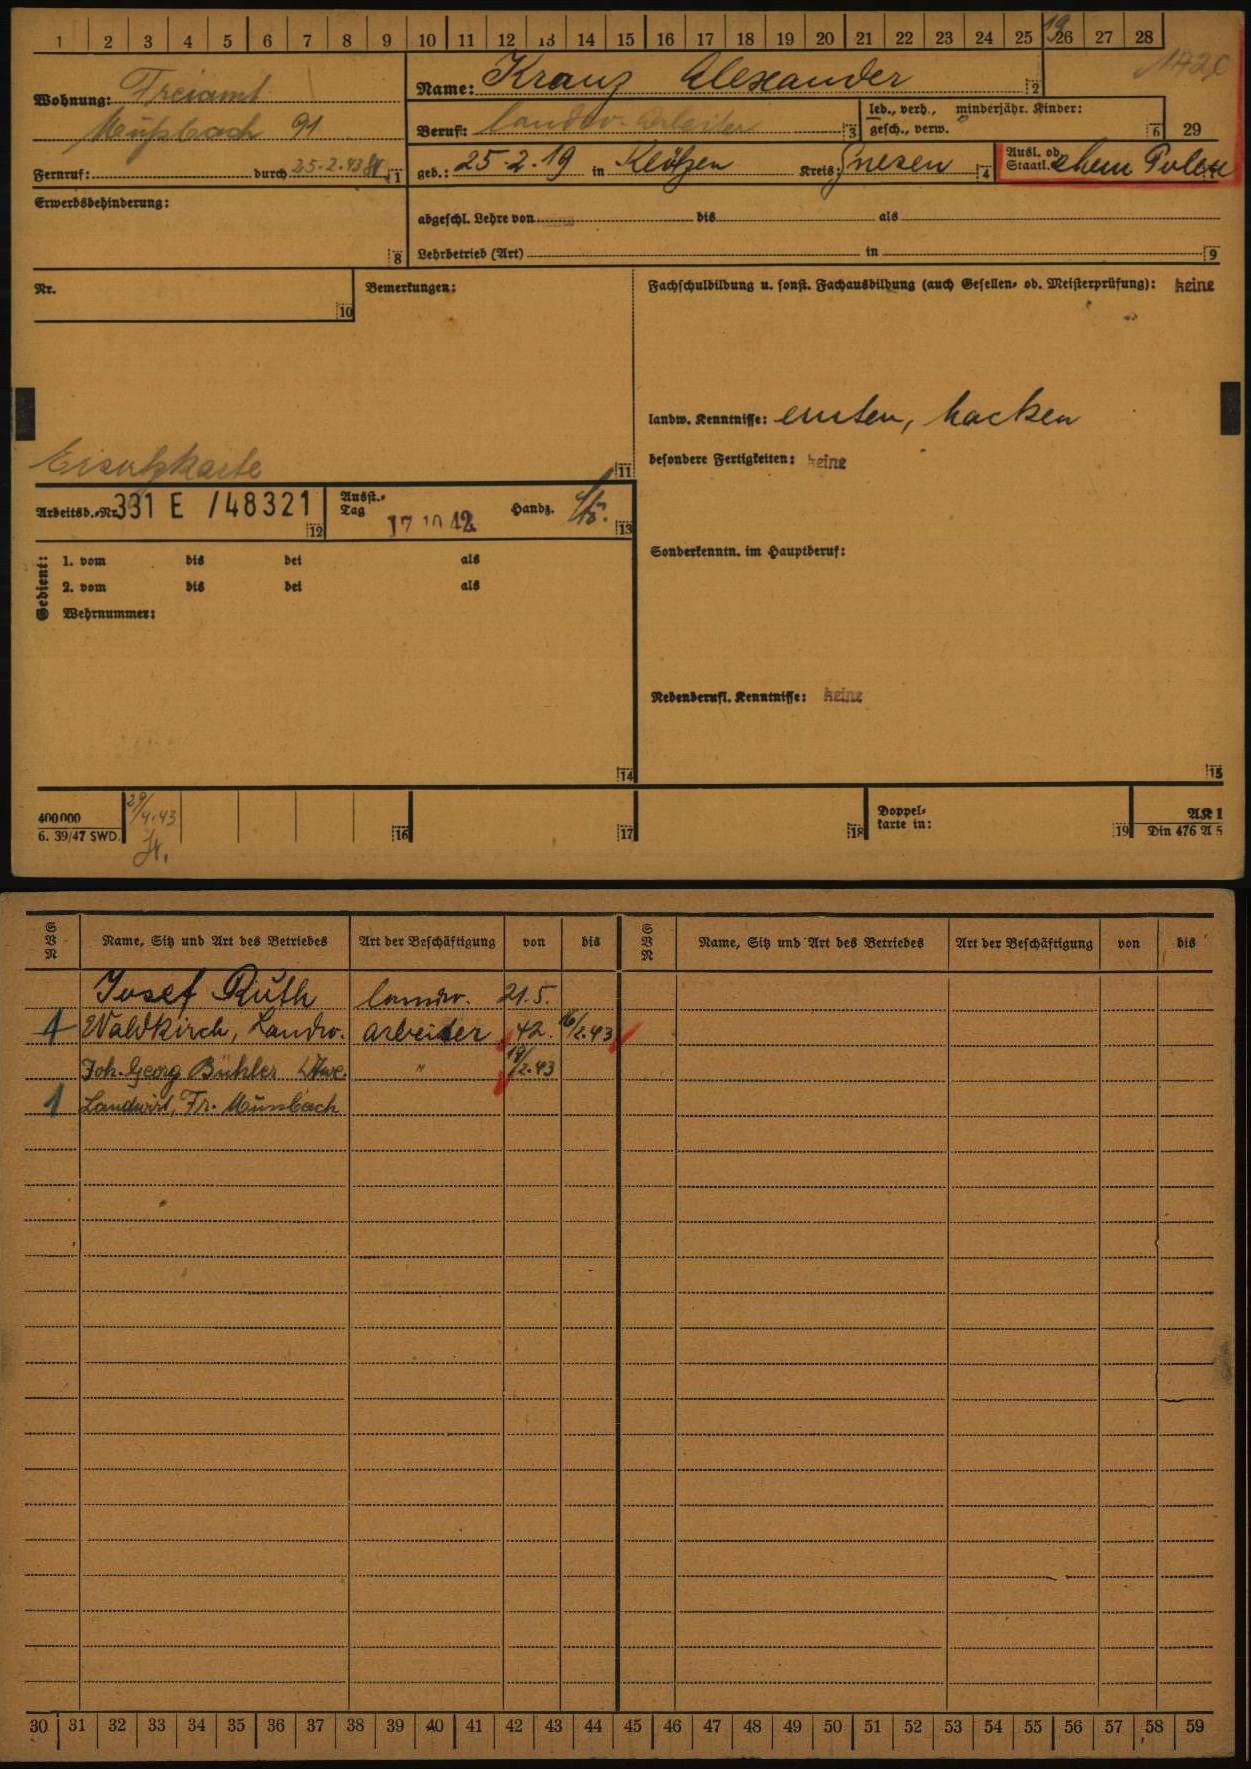 1 2 3 4 5 6 7 8 9 10 11 12 13 14 15 16 17 18 19 20 21 22 23 24 25 26 27 28
19
Wohnung: Freiamt
Mußbach 91
Fernruf: durch 25.2.43 1
Name: Kranz Alexander 2
Beruf: landw. Arbeiter 3
led., verh., minderjähr. Kinder:
gesch., verw. 6
29
geb.: 25.2.19 in Klötzen Kreis: Gnesen 4
Ausl. od.
Staatl. ehem Polen
Erwerbsbehinderung:
8
abgeschl. Lehre von bis als
Lehrbetrieb (Art) in 9
Nr.
10
Bemerkungen:
Fachschulbildung u. sonst. Fachausbildung (auch Gesellen- od. Meisterprüfung): keine
landw. Kenntnisse: ernten, hacken
besondere Fertigkeiten: keine
11
Arbeitsb.-Nr. 331 E /48321 12
Ausst.-
Tag 17 10 42 Handz. 13
Sonderkenntn. im Hauptberuf:
Gedient:
1. vom bis bei als
2. vom bis bei als
Wehrnummer:
Nebenberufl. Kenntnisse: keine
14
15
400000
6. 39/47 SWD.
29/4.43
16
17
18
Doppel-
karte in:
19
AK 1
Din 476 A 5
SVN Name, Sitz und Art des Betriebes Art der Beschäftigung von bis SVN Name, Sitz und Art des Betriebes Art der Beschäftigung von bis
Josef Ruth landw. 21.5.
1 Waldkirch, Landw. arbeiter 42. 16/2.43
Joh. Georg Bühler Wwe. " 17/2.43
1 Landwirt, Fr. Mussbach
30 31 32 33 34 35 36 37 38 39 40 41 42 43 44 45 46 47 48 49 50 51 52 53 54 55 56 57 58 59